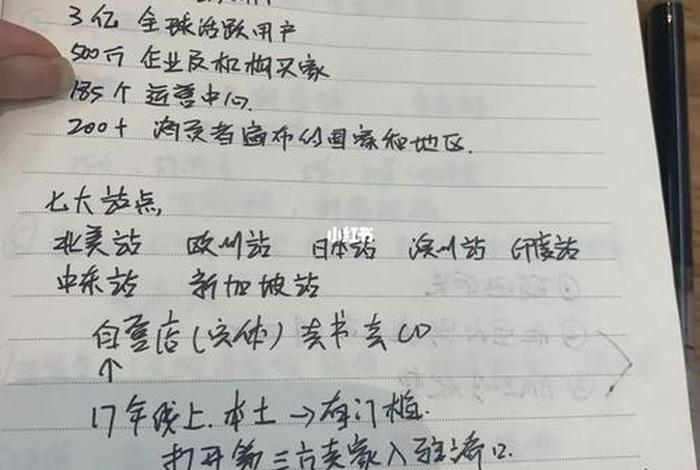 3亿 全球活跃用户
500万 企业及机构买家
185个 运营中心.
200+ 消费者遍布的国家和地区.
七大站点,
北美站 欧州站 日本站 澳州站 印度站
中东站 新加坡站
小红书
自营店(实体) 卖书卖CD
↑
17年线上.本土→有门槛.
打开第三方卖家入驻港口.